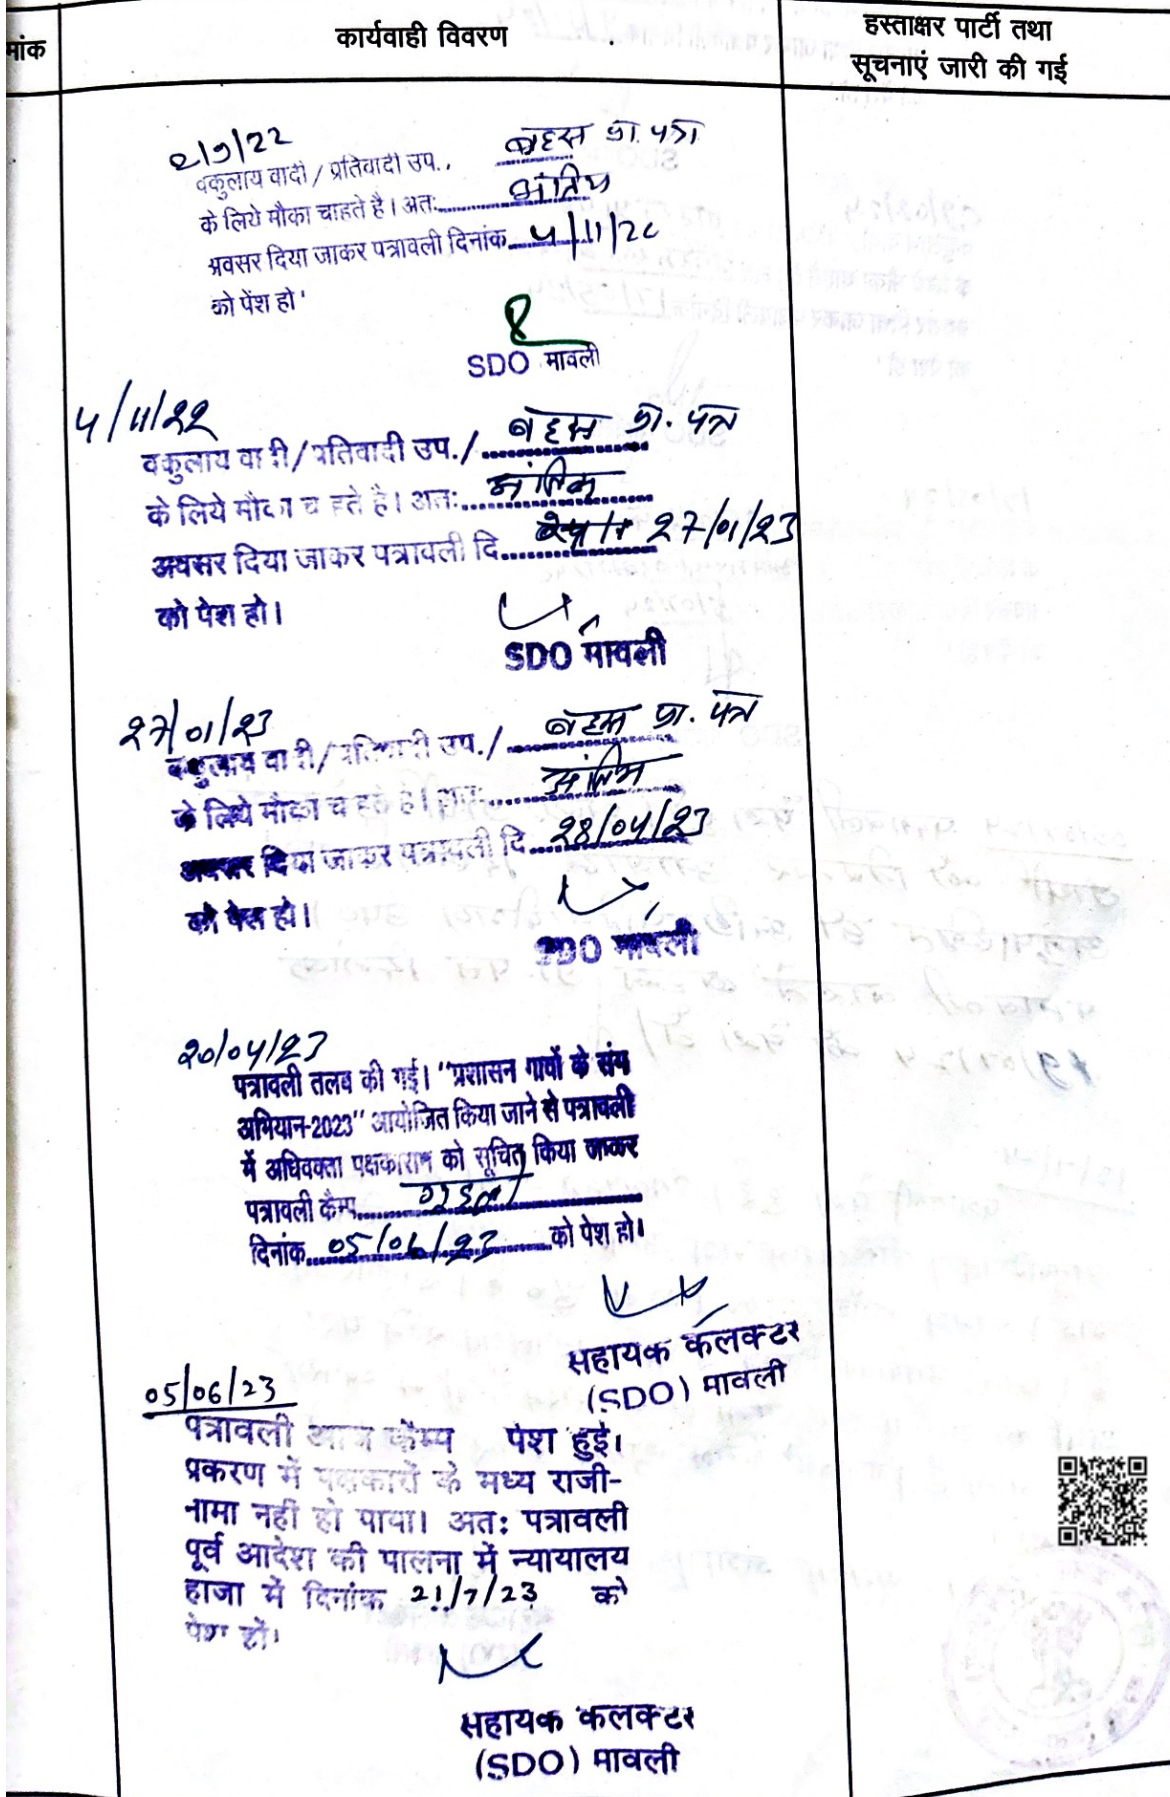 मांक
कार्यवाही विवरण
हस्ताक्षर पार्टी तथा
सूचनाएं जारी की गई
2/9/22
वकुलाय वादी / प्रतिवादी उप.. बहस प्रा. पत्र
के लिये मौका चाहते है। अतः अंतिम
अवसर दिया जाकर पत्रावली दिनांक 4/11/22
को पेंश हो '
SDO मावली
4/11/22
वकुलाय वादी / प्रतिवादी उप. / बहस प्रा. पत्र
के लिये मौका चाहते है। अतः अंतिम
अवसर दिया जाकर पत्रावली दि. 27/01/23
को पेश हो।
SDO मावली
27/01/23
वकुलाय वादी / प्रतिवादी उप. / बहस प्रा. पत्र
के लिये मौका चाहते है। अतः अंतिम
अवसर दिया जाकर पत्रावली दि. 28/04/23
को पेश हो।
SDO मावली
20/04/23
पत्रावली तलब की गई। "प्रशासन गावों के संग
अभियान-2023" आयोजित किया जाने से पत्रावली
में अधिवक्ता पक्षकारान को सूचित किया जाकर
पत्रावली कैम्प
दिनांक 05/06/23 को पेश हो।
सहायक कलक्टर
(SDO) मावली
05/06/23
पत्रावली आज कैम्प पेश हुई।
प्रकरण में पक्षकारों के मध्य राजी-
नामा नहीं हो पाया। अतः पत्रावली
पूर्व आदेश की पालना में न्यायालय
हाजा में दिनांक 21/7/23 को
पेश हों।
सहायक कलक्टर
(SDO) मावली